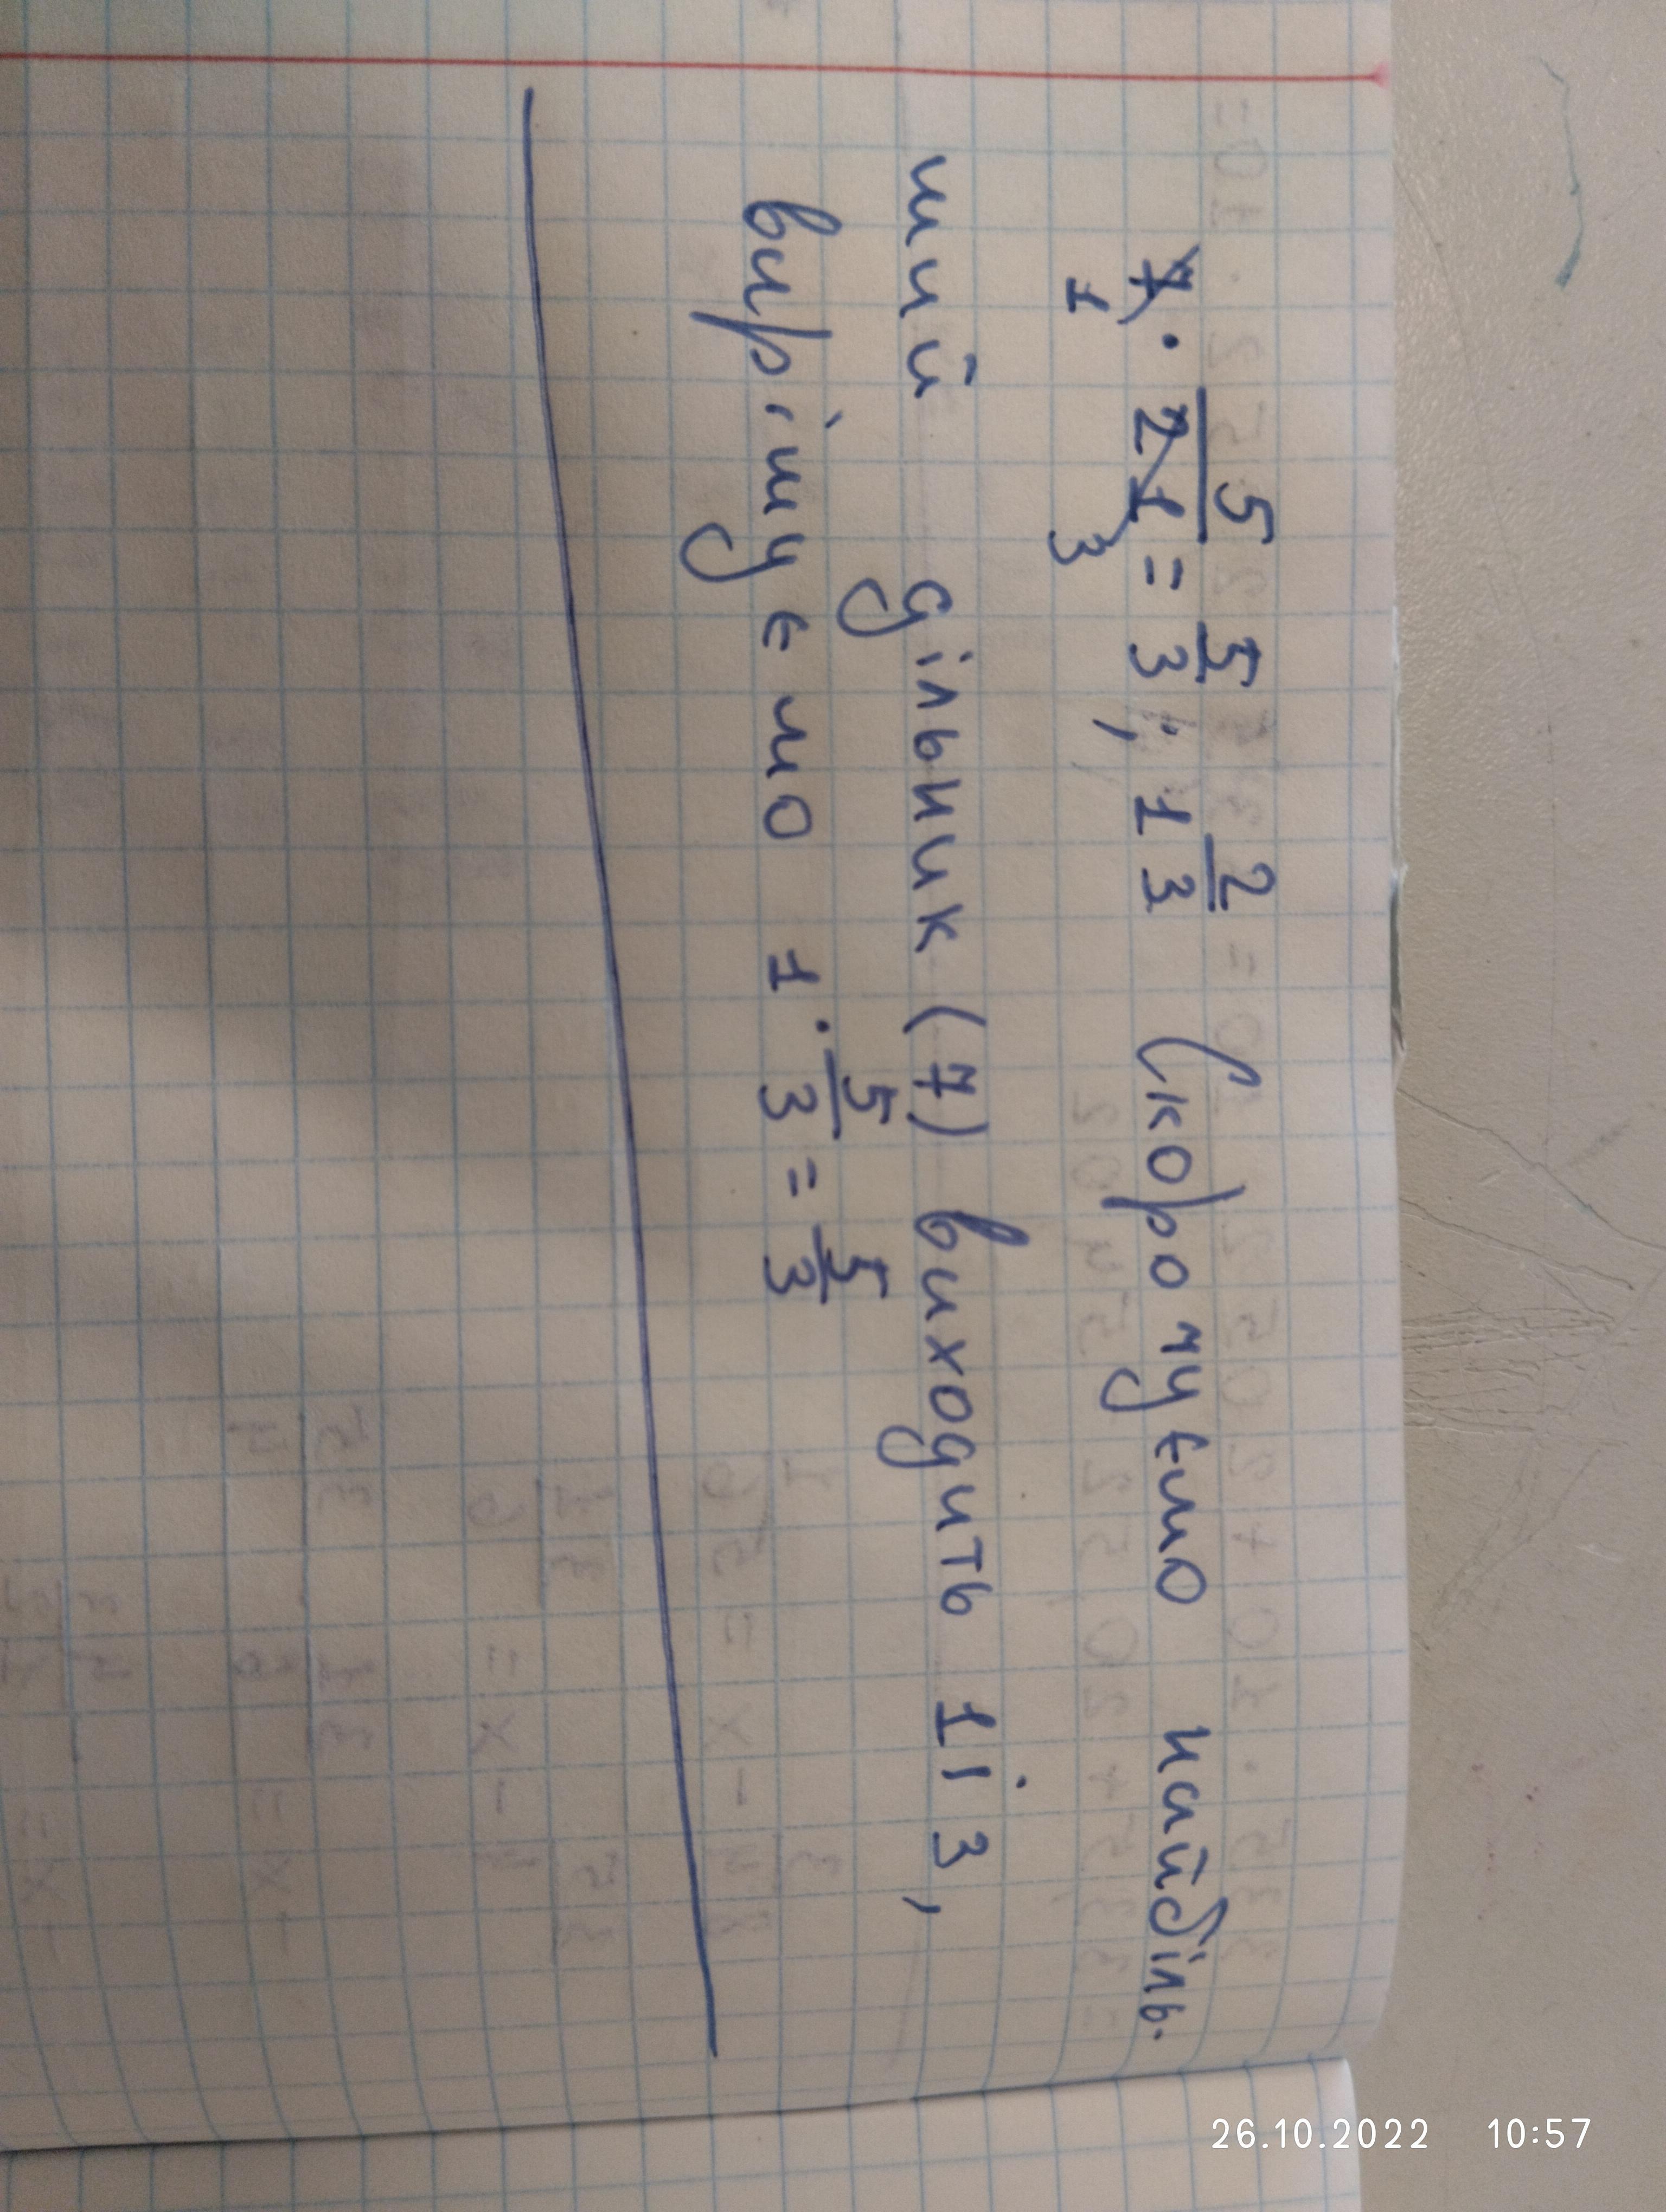 7 · 5/21 = 5/3 ; 1 2/3 Скоротуємо найбіль.
1 3
ший дільник (7) виходить 1 і 3,
вирішуємо 1 · 5/3 = 5/3
26.10.2022 10:57